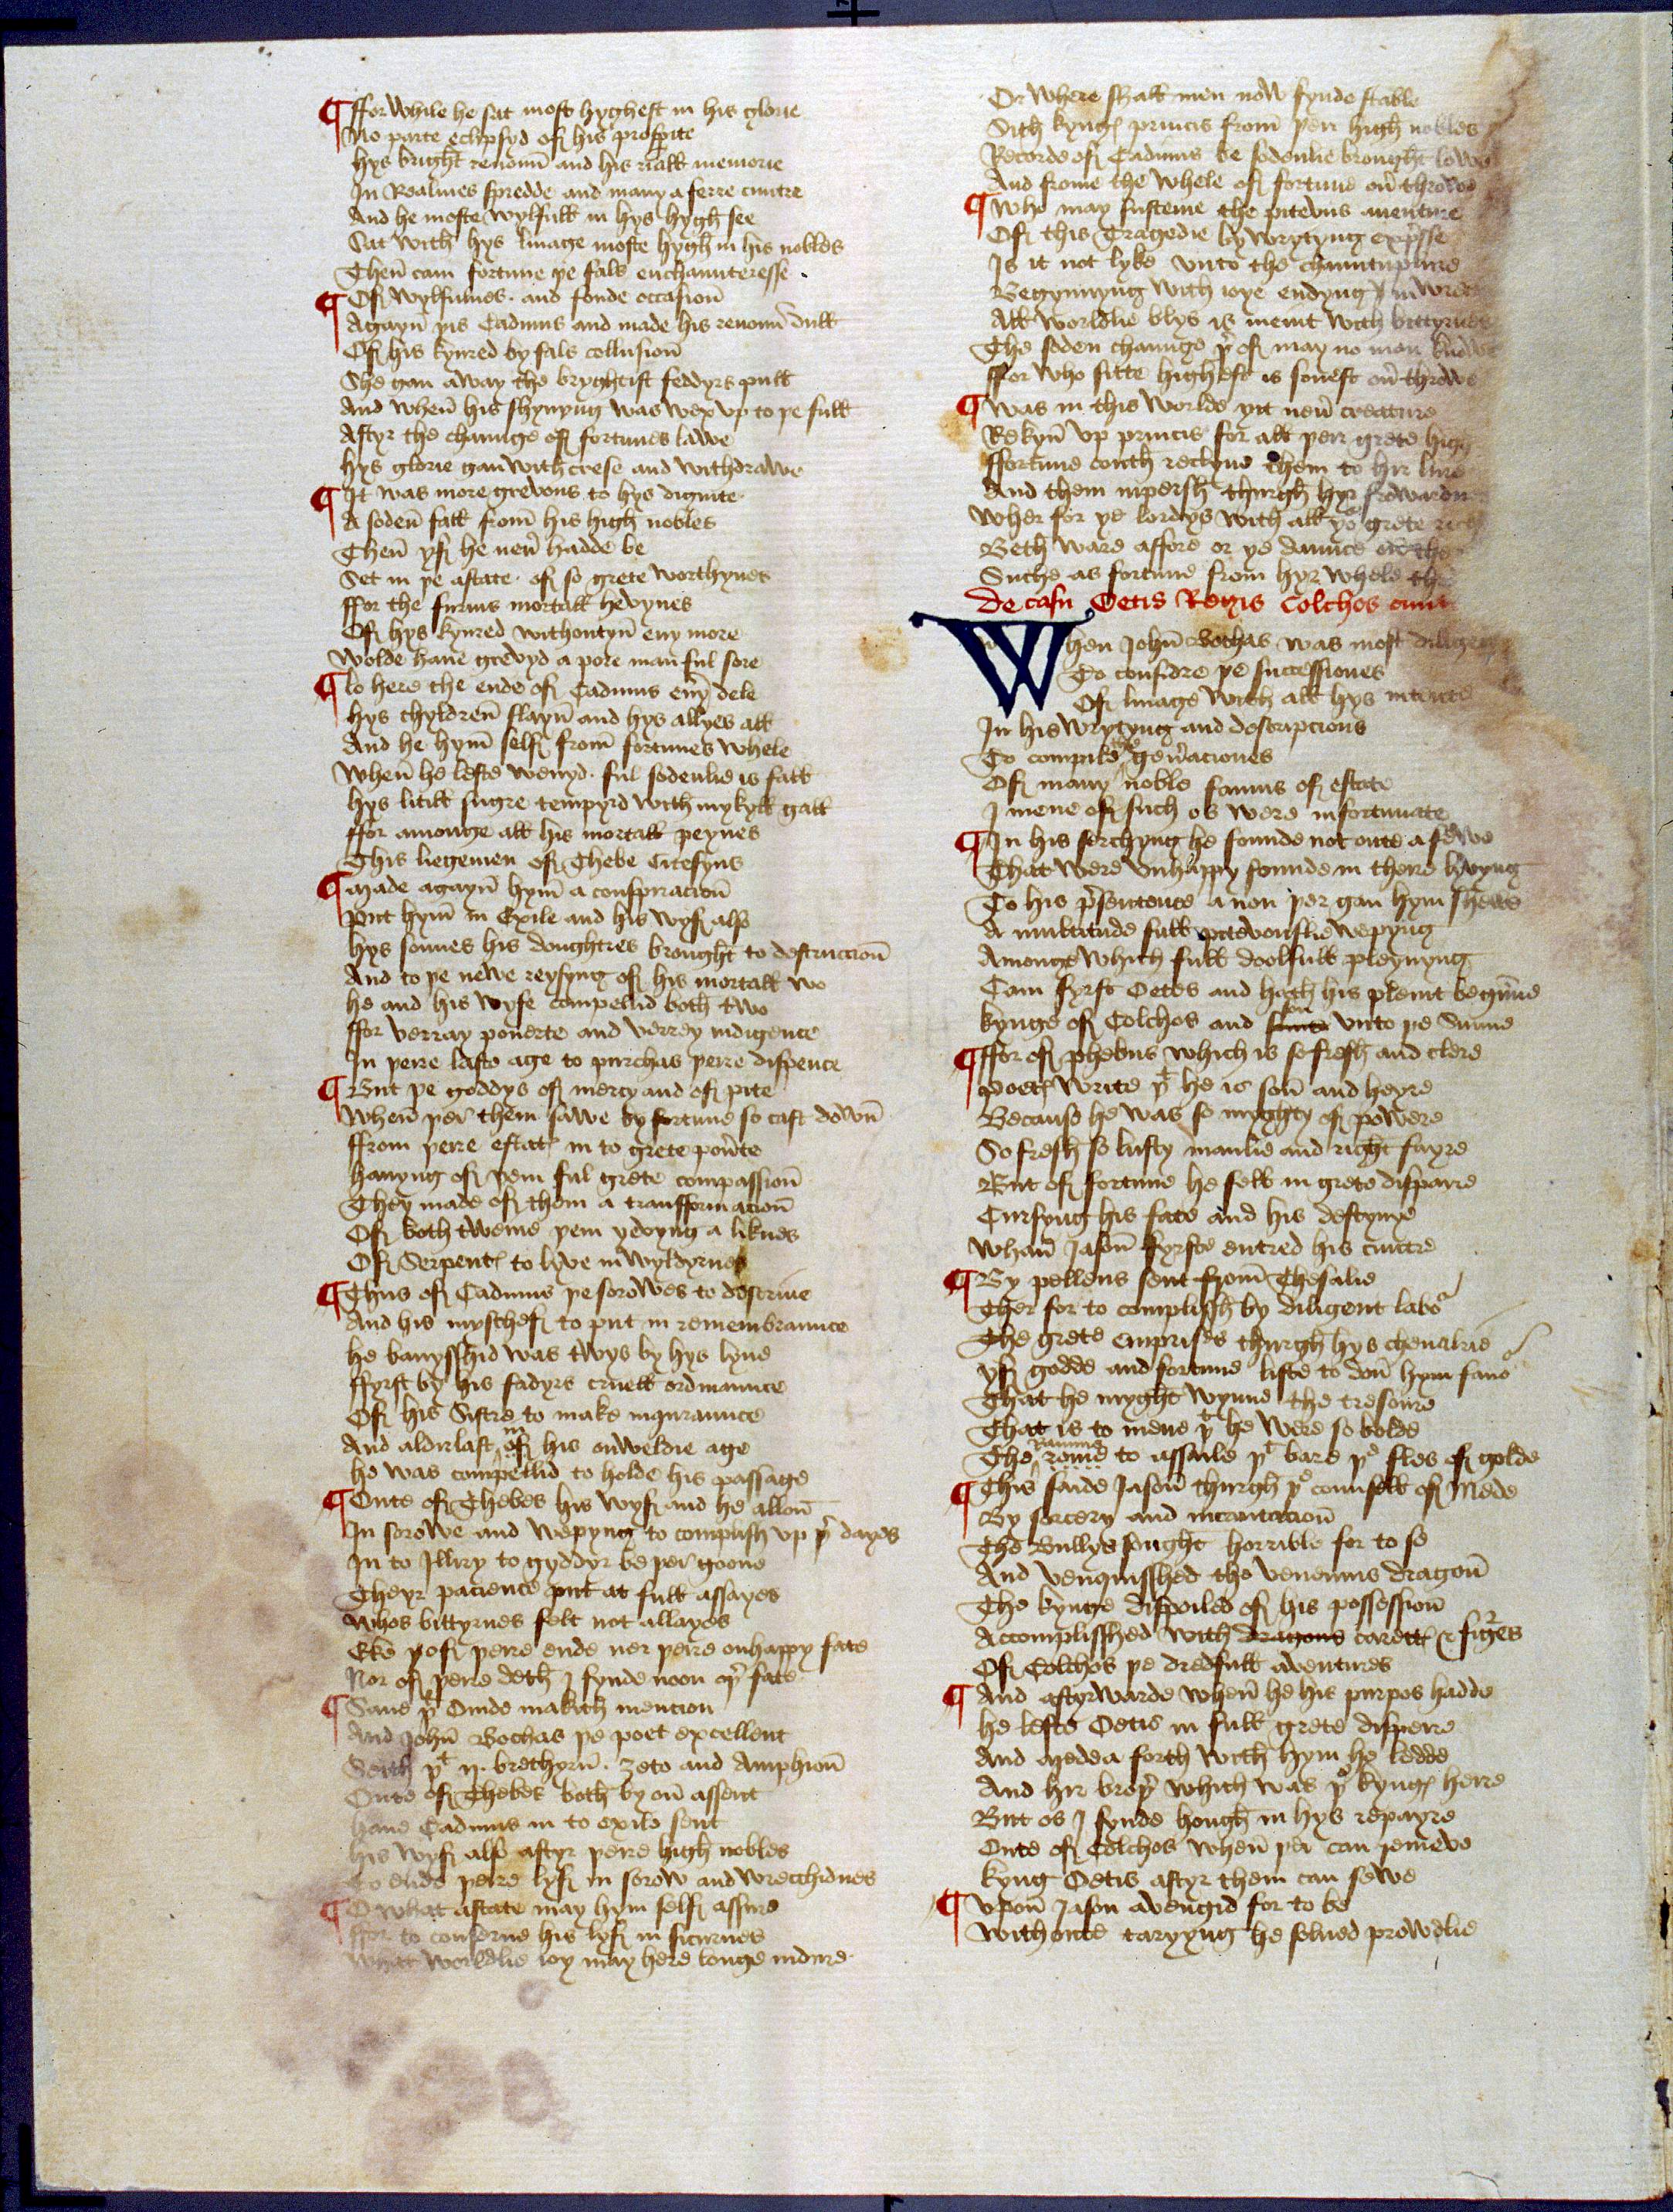 ¶ ffor while he sat most hyghest in his glorie
No parte eclipsyd of his prosꝑite
hys bright renoun̄ and his riall memorie
In Realmes spredde and many a ferre cuntre
And he moste wylfull in hys hygh see
Sat with hys linage moste hygh in his nobles
Then̄ cam fortune þe fals enchaunteresse
¶ Of wylfulnes and fonde occasion̄
Agayn̄ þis Cadmus and made his renoun̄ dull
Of his kynred by fals collusion̄
She gan away the bryghtist feddyrs pull
And when̄ his shynyng was wex vp to þe full
Aftyr the chaunge of fortunes lawe
hys glorie gan with crese and withdrawe
¶ It was more grevous to hys dignite
A soden̄ fall from̄ his high nobles
Then̄ yf he neu̓ hadde be
Set in þe astate of so grete worthynes
ffor the furius mortall hevynes
Of hys kynred withoutyn̄ eny more
Wolde haue grevyd a pore man ful sore
¶ lo here the ende of Cadmus eu̓y dele
hys chyldren̄ slayn̄ and hys allyes all
And he hym̄ self from̄ fortunes whele
When̄ he leste wenyd ful sodenlie is fall
hys litill sugre tempyrd with mykyll gall
ffor amonge all his mortall peynes
This liegemen of Thebe Citesyns
¶ Made agayn̄ hym̄ a conspiracion̄
Put hym̄ in Exile and his wyf also
hys sonnes his doughtres brought to destruccion̄
And to þe newe reysyng of his mortall wo
he and his wyfe compellid both two
ffor verray pouerte and verrey indigence
In þeire laste age to purchas þeire dispence
¶ But þe goddys of mercy and of pite
When̄ þei them sawe by fortune so cast down̄
ffrom þeire estatꝭ in to grete pou̓te
hauyng of þem ful grete compassion̄
They made of them a transformacion̄
Of both tweine þem yevyng a liknes
Of Serpentꝭ to lyve in wyldyrnes
¶ Thus of Cadmus þe sorowes to descriue
And his myschef to put in remembraunce
he banysshid was twys by hys lyue
ffyrst by his fadyrs cruell ordinaunce
Of his Sistre to make inquraunce
And aldirlast in of his onweldie age
he was compellid to holde his passage
¶ Oute of Thebes his wyf and he allon̄
In sorowe and wepyng to complish vp þ̓ dayes
In to Illiry to gyddyr be þei goone
Theyr pacience put at full assayes
Whos bittyrnes felt not allayes
Eke yof þeire ende ner þeire onhappy fate
Nor of þeire deth I fynde noon oþ̓ fate
¶ Saue þᵗ Ouide makith mencion
And John̄ Bochas þe poet excellent
Seith þᵗ ij. brethyrn̄. Zeto and Amphion̄
Oute of Thebes both by on̄ assent
haue Cadmus in to exile sent
his wyf also aftyr þeire high nobles
To ende þeire lyf in sorow and wrecchidnes
¶ O what astate may hym self assure
ffor to conserue his lyf in sicurnes
What worldlie ioy may here longe indure
Or where shall men now fynde stable
Sith kyngꝭ princis from̄ þeir high nobles
Recorde of Cadmus be sodenlie brought lowe
And frome the whele of fortune ou̓ throwe
¶ Who may susteine the pitevus auenture
Of this Tragedie by wrytyng exp̓sse
Is it not lyke vnto the chauntupleure
Begynnyng with ioye endyng in
All worldlie blys is meint with bittyrnes
The soden chaunge þ̓ of may no man knowe
ffor who sitte highest is sonest ou̓ throwe
¶ Was in this worlde yit neu̓ creature
Rekyn̄ vp princis for all þeir grete
ffortune couth reclyne them to hir lure
And them inpersh thurgh hyr frowardnes
Wher for ye lordys with all yoʳ grete
Beth ware affore or ye daunce on the
Suche as fortune from hyr whele
De casu Oetis Regis Colchos
When John̄ Bochas was most diligent
To considre þe successiones
Of linage with all hys intente
In his wrytyng and descripciones
To compile þᵉ gen̓aciones
Of many noble famus of estate
I mene of such os were infortunate
¶ In his serchyng he founde not oute a fewe
That were vnhappy founde in there lyvyng
To his p̓sentence a non þer gan hym shewe
A multitude full pitevouslie wepyng
Amonge which full doolfull pleynyng
Cam fyrst Oetes and hath his pleint begūne
kynge of Colchos and son vnto þe Sunne
¶ ffor of phebus which is so fresh and clere
Poetꝭ write þᵗ he is son̄ and heyre
Because he was so myghty of powere
So fresh so lusty manlie and right fayre
But of fortune he fell in grete dispaire
Cursyng his fate and his destyne
Whan̄ Jason̄ fyrste entred his cuntre
¶ By pelleus sent from̄ Thesalie
Ther for to complissh by diligent laboʳ
The grete emprises thurgh hys cheualrie
yf godde and fortune liste to don̄ hym fauoʳ
That he myght wynne the tresoure
That is to mene þᵗ he were so bolde
The Ramme rome to assaile þᵗ bare þᵉ fles of golde
¶ This saide Jason̄ thurgh þᵉ counsell of Mede
By sorcery and incantacion̄
The Bullys sought horrible for to se
And venquisshed the venemus dragon̄
The kynge dispoiled of his possession̄
Accomplisshed with dragons carettꝭ & figʳes
Of Colchos þe dredfull aventures
¶ And aftyrwarde when̄ he his purpos hadde
he lefte Oetis in full grete dispeire
And Medea forth with hym he ledde
And hir broþ̓ which was þᵉ kyngꝭ heire
But os I fynde hough in hys repayre
Oute of Colchos when̄ þei can remeve
kyng Oetis aftyr them can sewe
¶ Vpon̄ Jason avengid for to be
Withoute taryyng he folued prowdlie